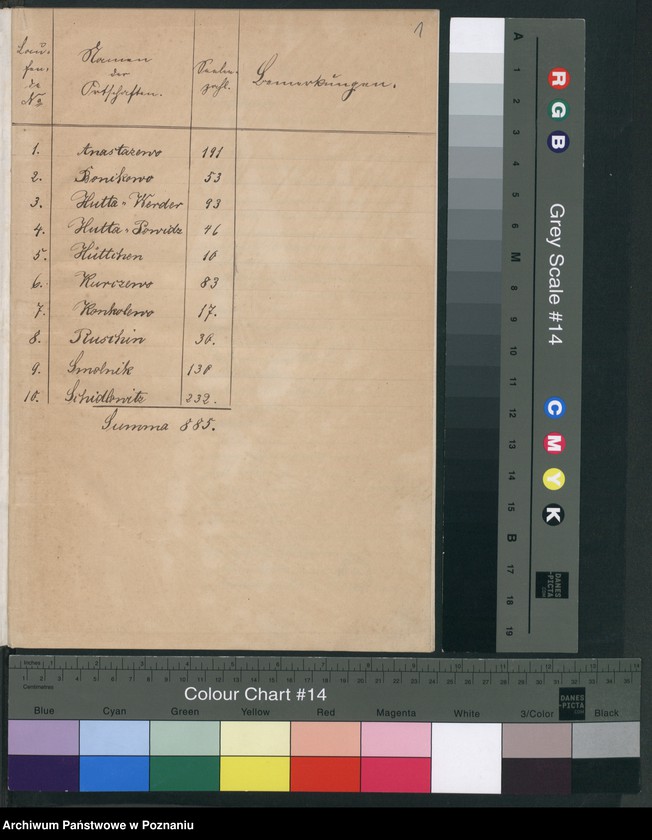 1
Laufende No
Namen der Ortschaften.
Seelenzahl.
Bemerkungen.
1. Anastazewo 191
2. Bonikowo 53
3. Hutta-Werder 93
4. Hutta-Powidz 46
5. Hüttchen 10
6. Kurczewo 83
7. Konkolewo 17.
8. Ruschin 30.
9. Smolnik 130
10. Schidlowitz 232.
Summa 885.
A 1 2 3 4 5 6 M 8 9 10 11 12 13 14 15 B 17 18 19
R G B
Grey Scale #14
C M Y K
DANES PICTA
Inches
Centimetres
Colour Chart #14
DANES PICTA
Blue Cyan Green Yellow Red Magenta White 3/Color Black
Archiwum Państwowe w Poznaniu